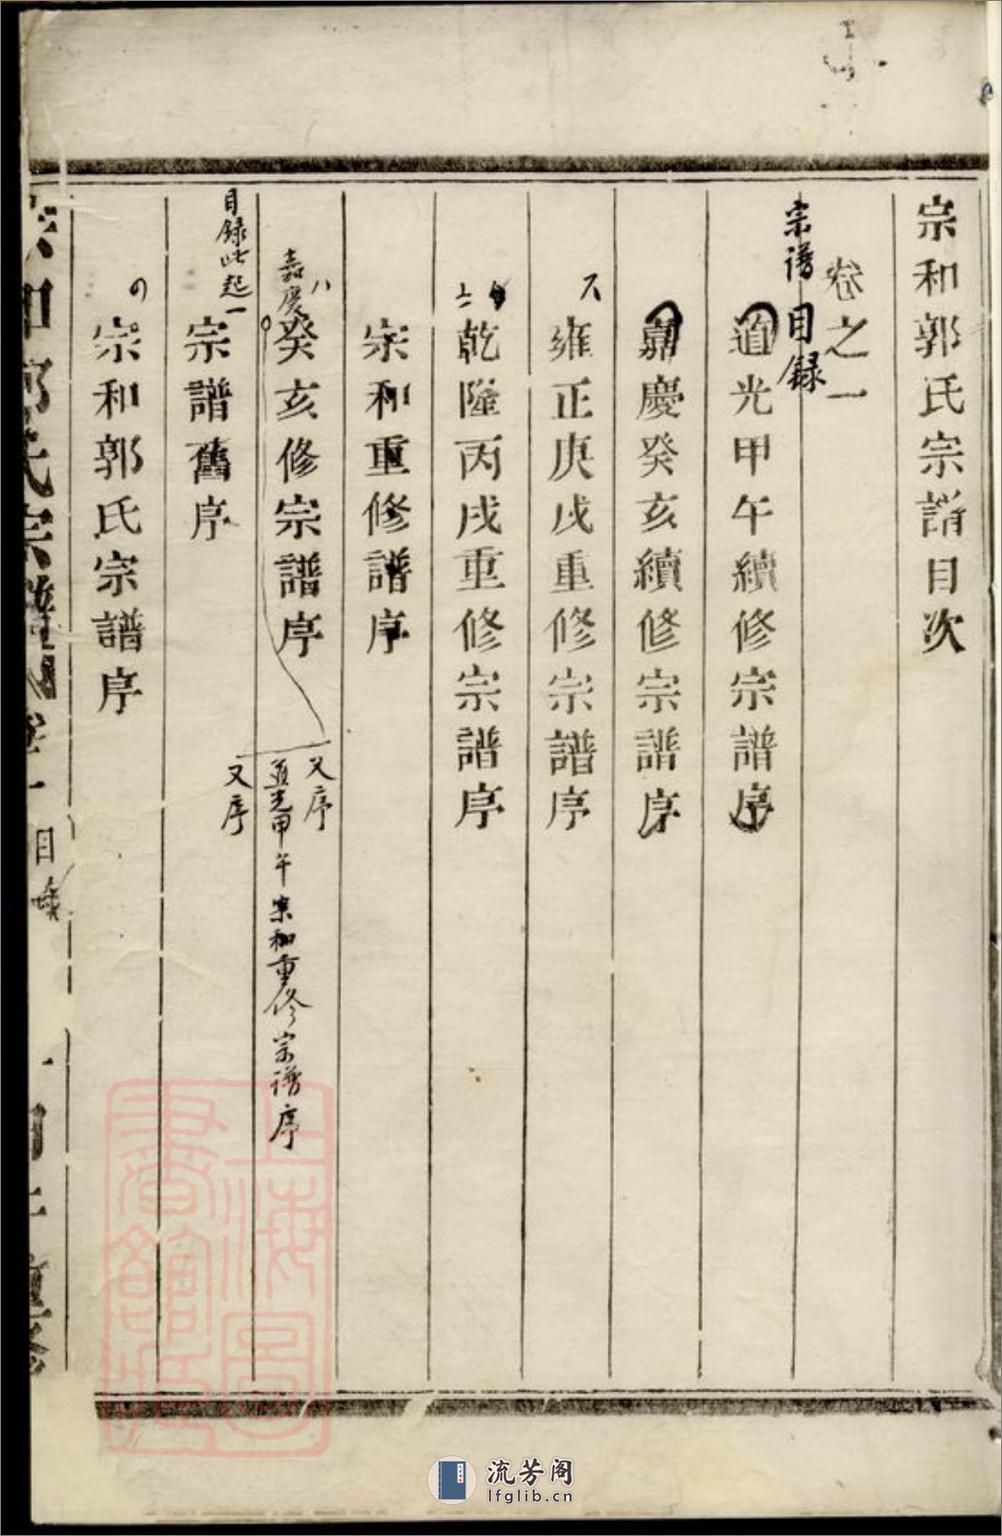 宗和郭氏宗譜目次
卷之一
宗譜目録
道光甲午續修宗譜序
嘉慶癸亥續修宗譜序
雍正庚戌重修宗譜序
乾隆丙戌重修宗譜序
宗和重修譜序
八
嘉慶
癸亥修宗譜序
又序
道光甲午宗和重修宗譜序
又序
目録此起一
宗譜舊序
宗和郭氏宗譜序
宗和郭氏宗譜
卷一
目
上海圖書館藏
流芳阁
lfglib.cn